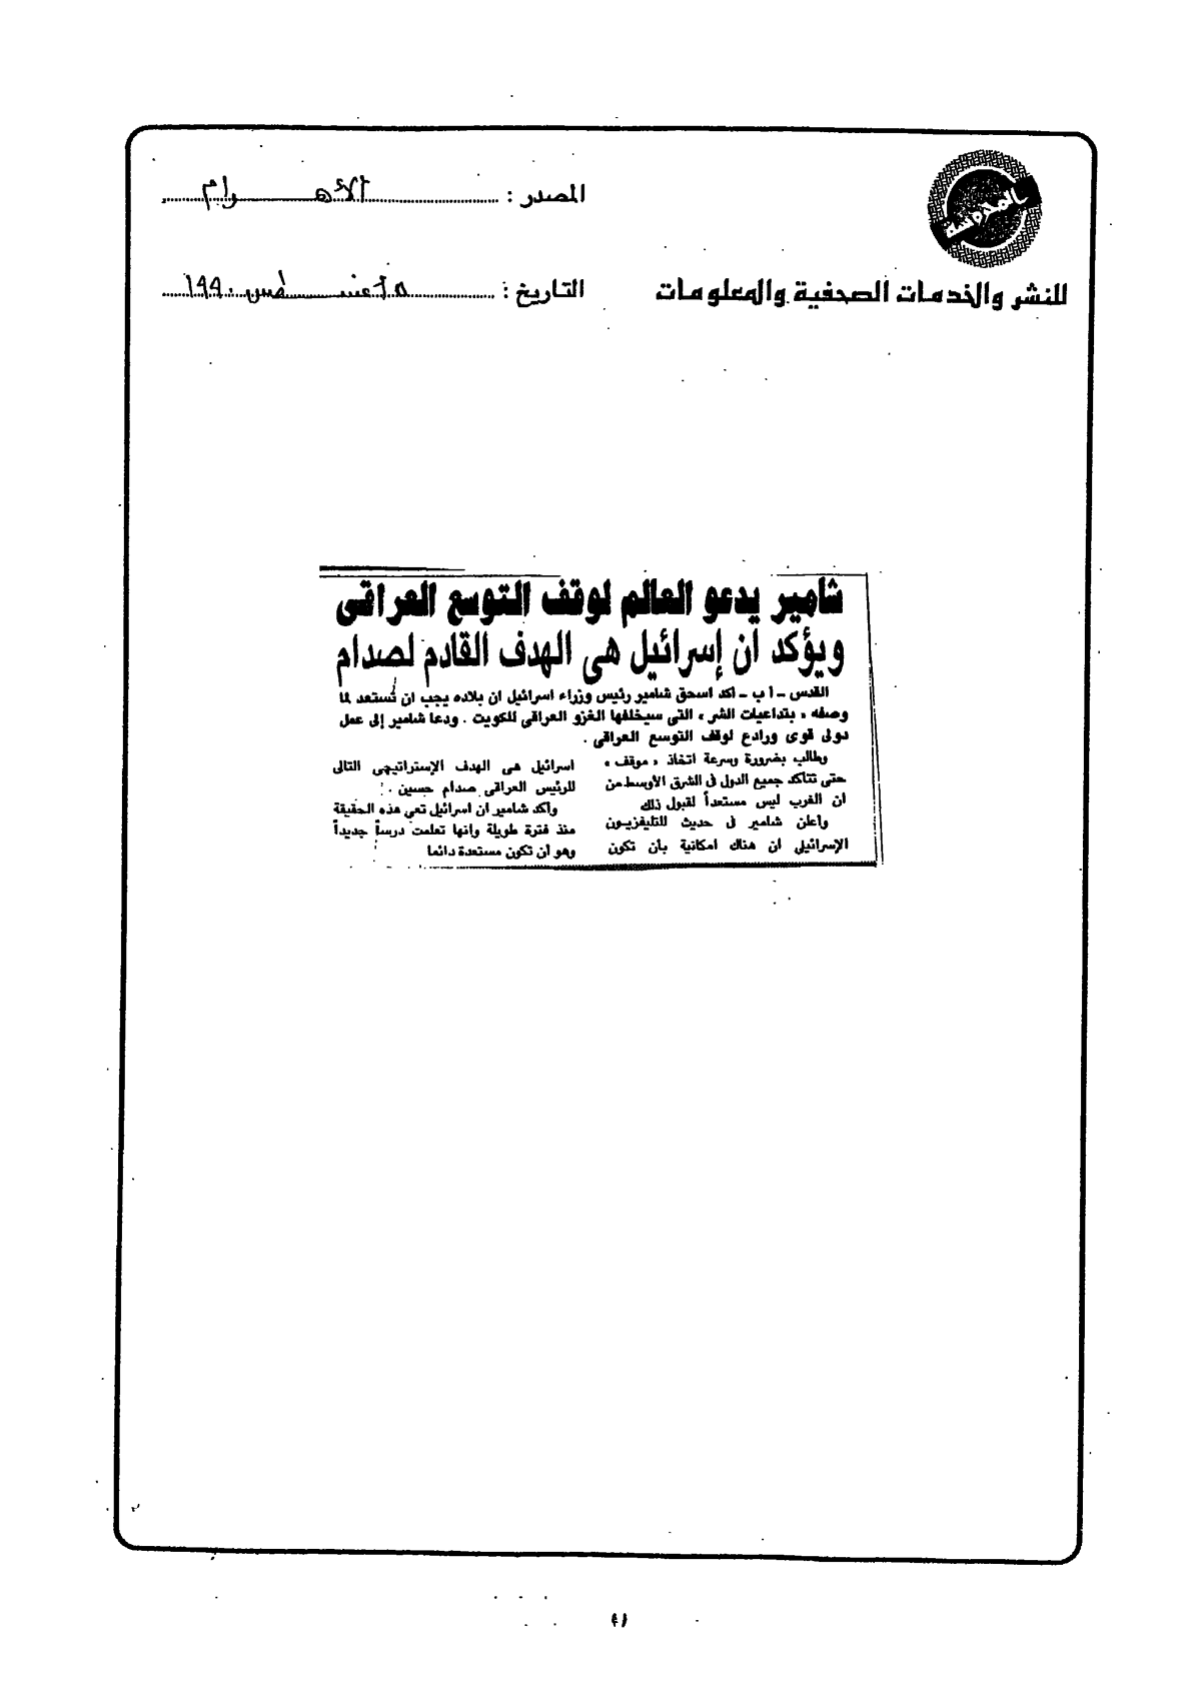 المصدر : الأهـــرام
التاريخ : ٥ أغسطس ١٩٩٠
للنشر والخدمات الصحفية والمعلومات
شامير يدعو العالم لوقف التوسع العراقى
ويؤكد ان إسرائيل هى الهدف القادم لصدام
القدس - أ ب - اكد اسحق شامير رئيس وزراء اسرائيل ان بلاده يجب ان تستعد لما
وصفه « بتداعيات الشر » التى سيخلفها الغزو العراقى للكويت . ودعا شامير إلى عمل
دولى قوى ورادع لوقف التوسع العراقى .
وطالب بضرورة وسرعة اتخاذ « موقف »
حتى تتأكد جميع الدول فى الشرق الأوسط من
ان الغرب ليس مستعداً لقبول ذلك
وأعلن شامير فى حديث للتليفزيون
الإسرائيلى ان هناك امكانية بأن تكون
اسرائيل هى الهدف الإستراتيجى التالى
للرئيس العراقى صدام حسين .
وأكد شامير ان اسرائيل تعى هذه الحقيقة
منذ فترة طويلة وانها تعلمت درساً جديداً
وهو أن تكون مستعدة دائما
٤١